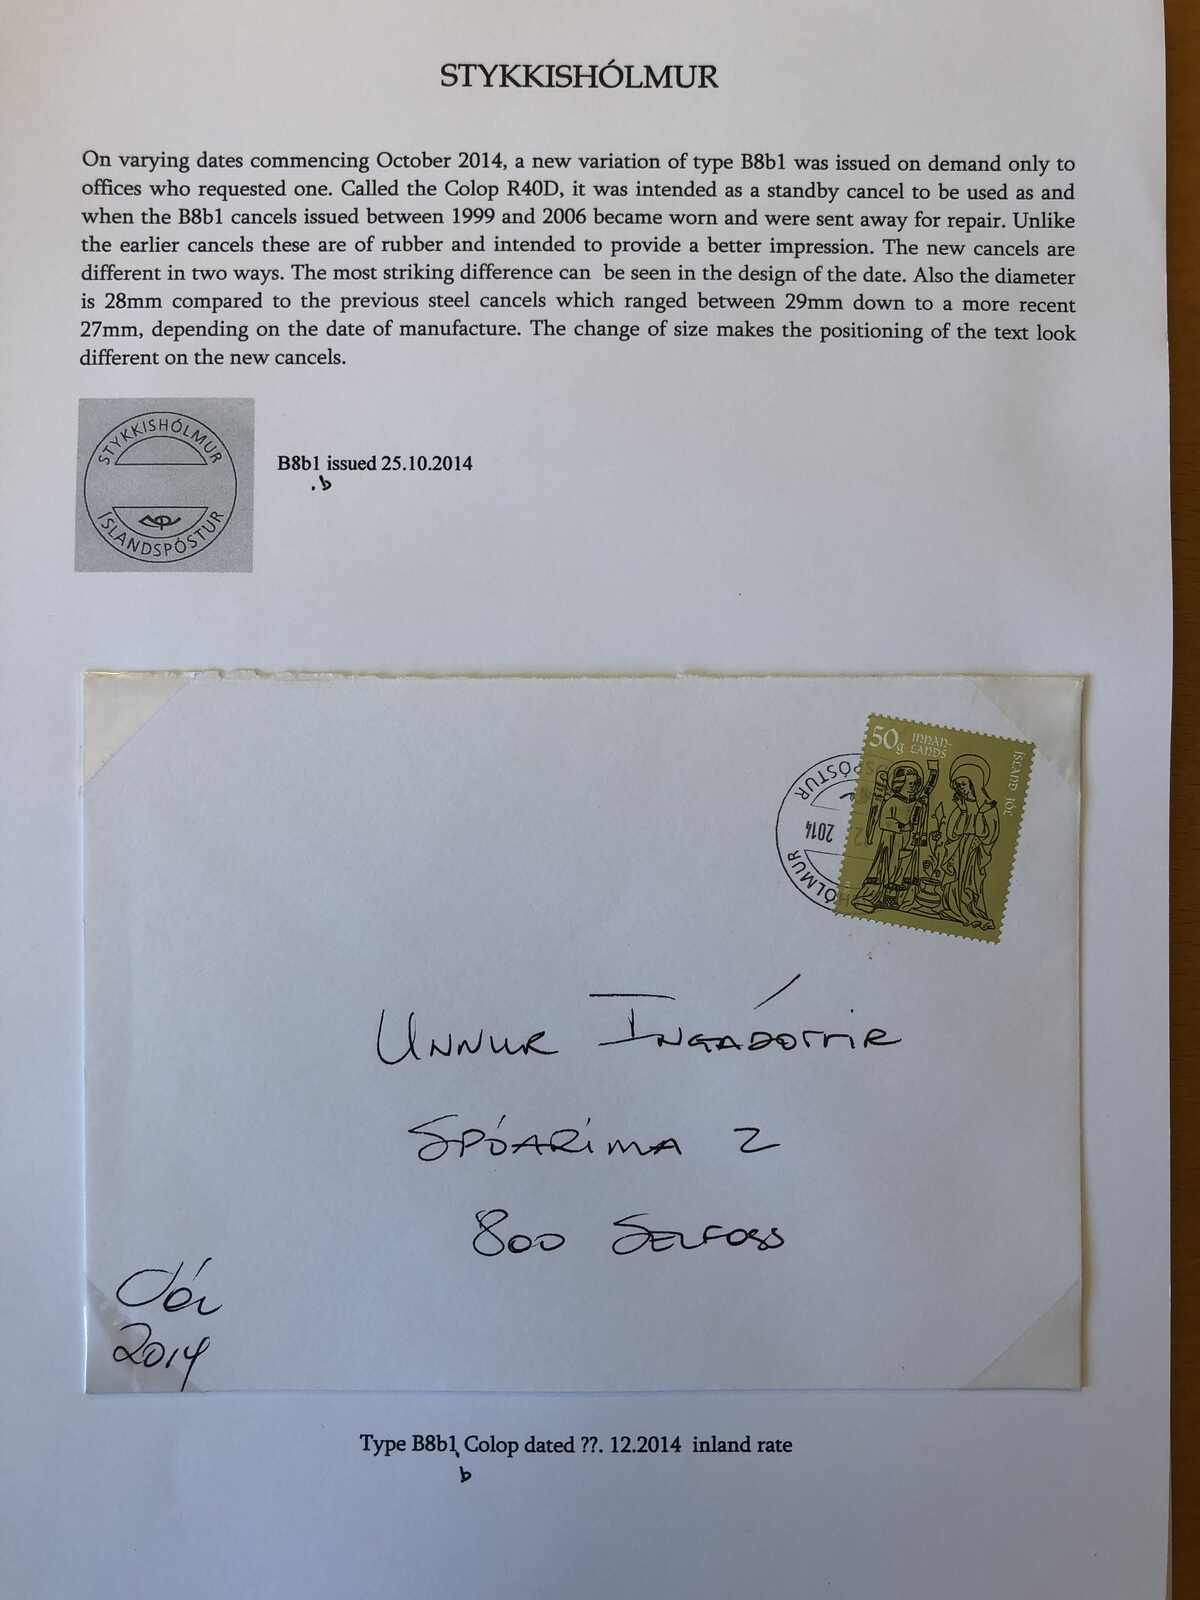 STYKKISHÓLMUR
On varying dates commencing October 2014, a new variation of type B8b1 was issued on demand only to
offices who requested one. Called the Colop R40D, it was intended as a standby cancel to be used as and
when the B8b1 cancels issued between 1999 and 2006 became worn and were sent away for repair. Unlike
the earlier cancels these are of rubber and intended to provide a better impression. The new cancels are
different in two ways. The most striking difference can be seen in the design of the date. Also the diameter
is 28mm compared to the previous steel cancels which ranged between 29mm down to a more recent
27mm, depending on the date of manufacture. The change of size makes the positioning of the text look
different on the new cancels.
STYKKISHÓLMUR
ÍSLANDSPÓSTUR
B8b1 issued 25.10.2014
.b
50g INNAN-
LANDS
ÍSLAND JÓL
PÓSTUR
12. 2014
HÓLMUR
UNNUR INGADÓTTIR
SPÓARÍMA 2
800 SELFOSS
Jól
2014
Type B8b1 Colop dated ??. 12.2014 inland rate
b